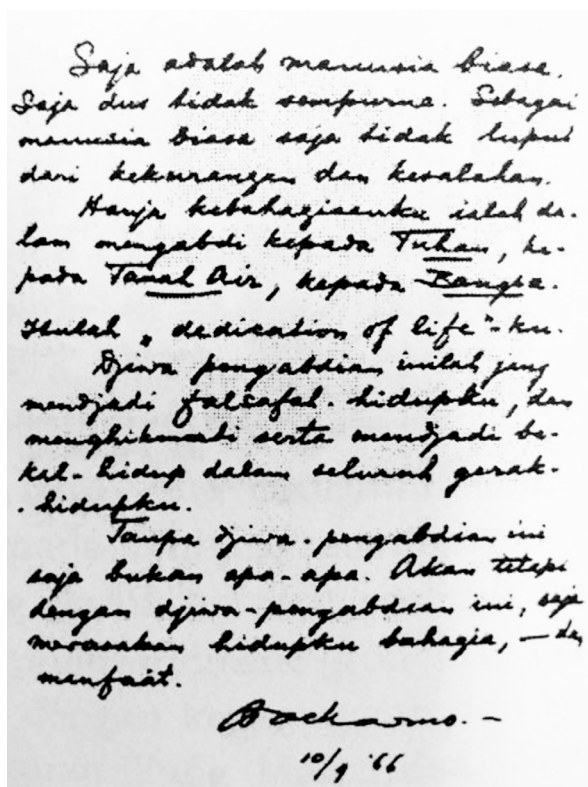 Saja adalah manusia biasa.
Saja dus tidak sempurna. Sebagai
manusia biasa saja tidak luput
dari kekurangan dan kesalahan.
Hanja kebahagiaanku ialah da-
lam mengabdi kepada Tuhan, ke-
pada Tanah Air, kepada Bangsa.
Itulah „dedication of life"-ku.
Djiwa pengabdian inilah jang
mendjadi falsafah-hidupku, dan
menghikmati serta mendjadi be-
kal-hidup dalam seluruh gerak-
-hidupku.
Tanpa djiwa-pengabdian ini
saja bukan apa-apa. Akan tetapi
dengan djiwa-pengabdian ini, saja
merasakan hidupku bahagia, — dan
manfaat.
Soekarno.-
10/9 '66